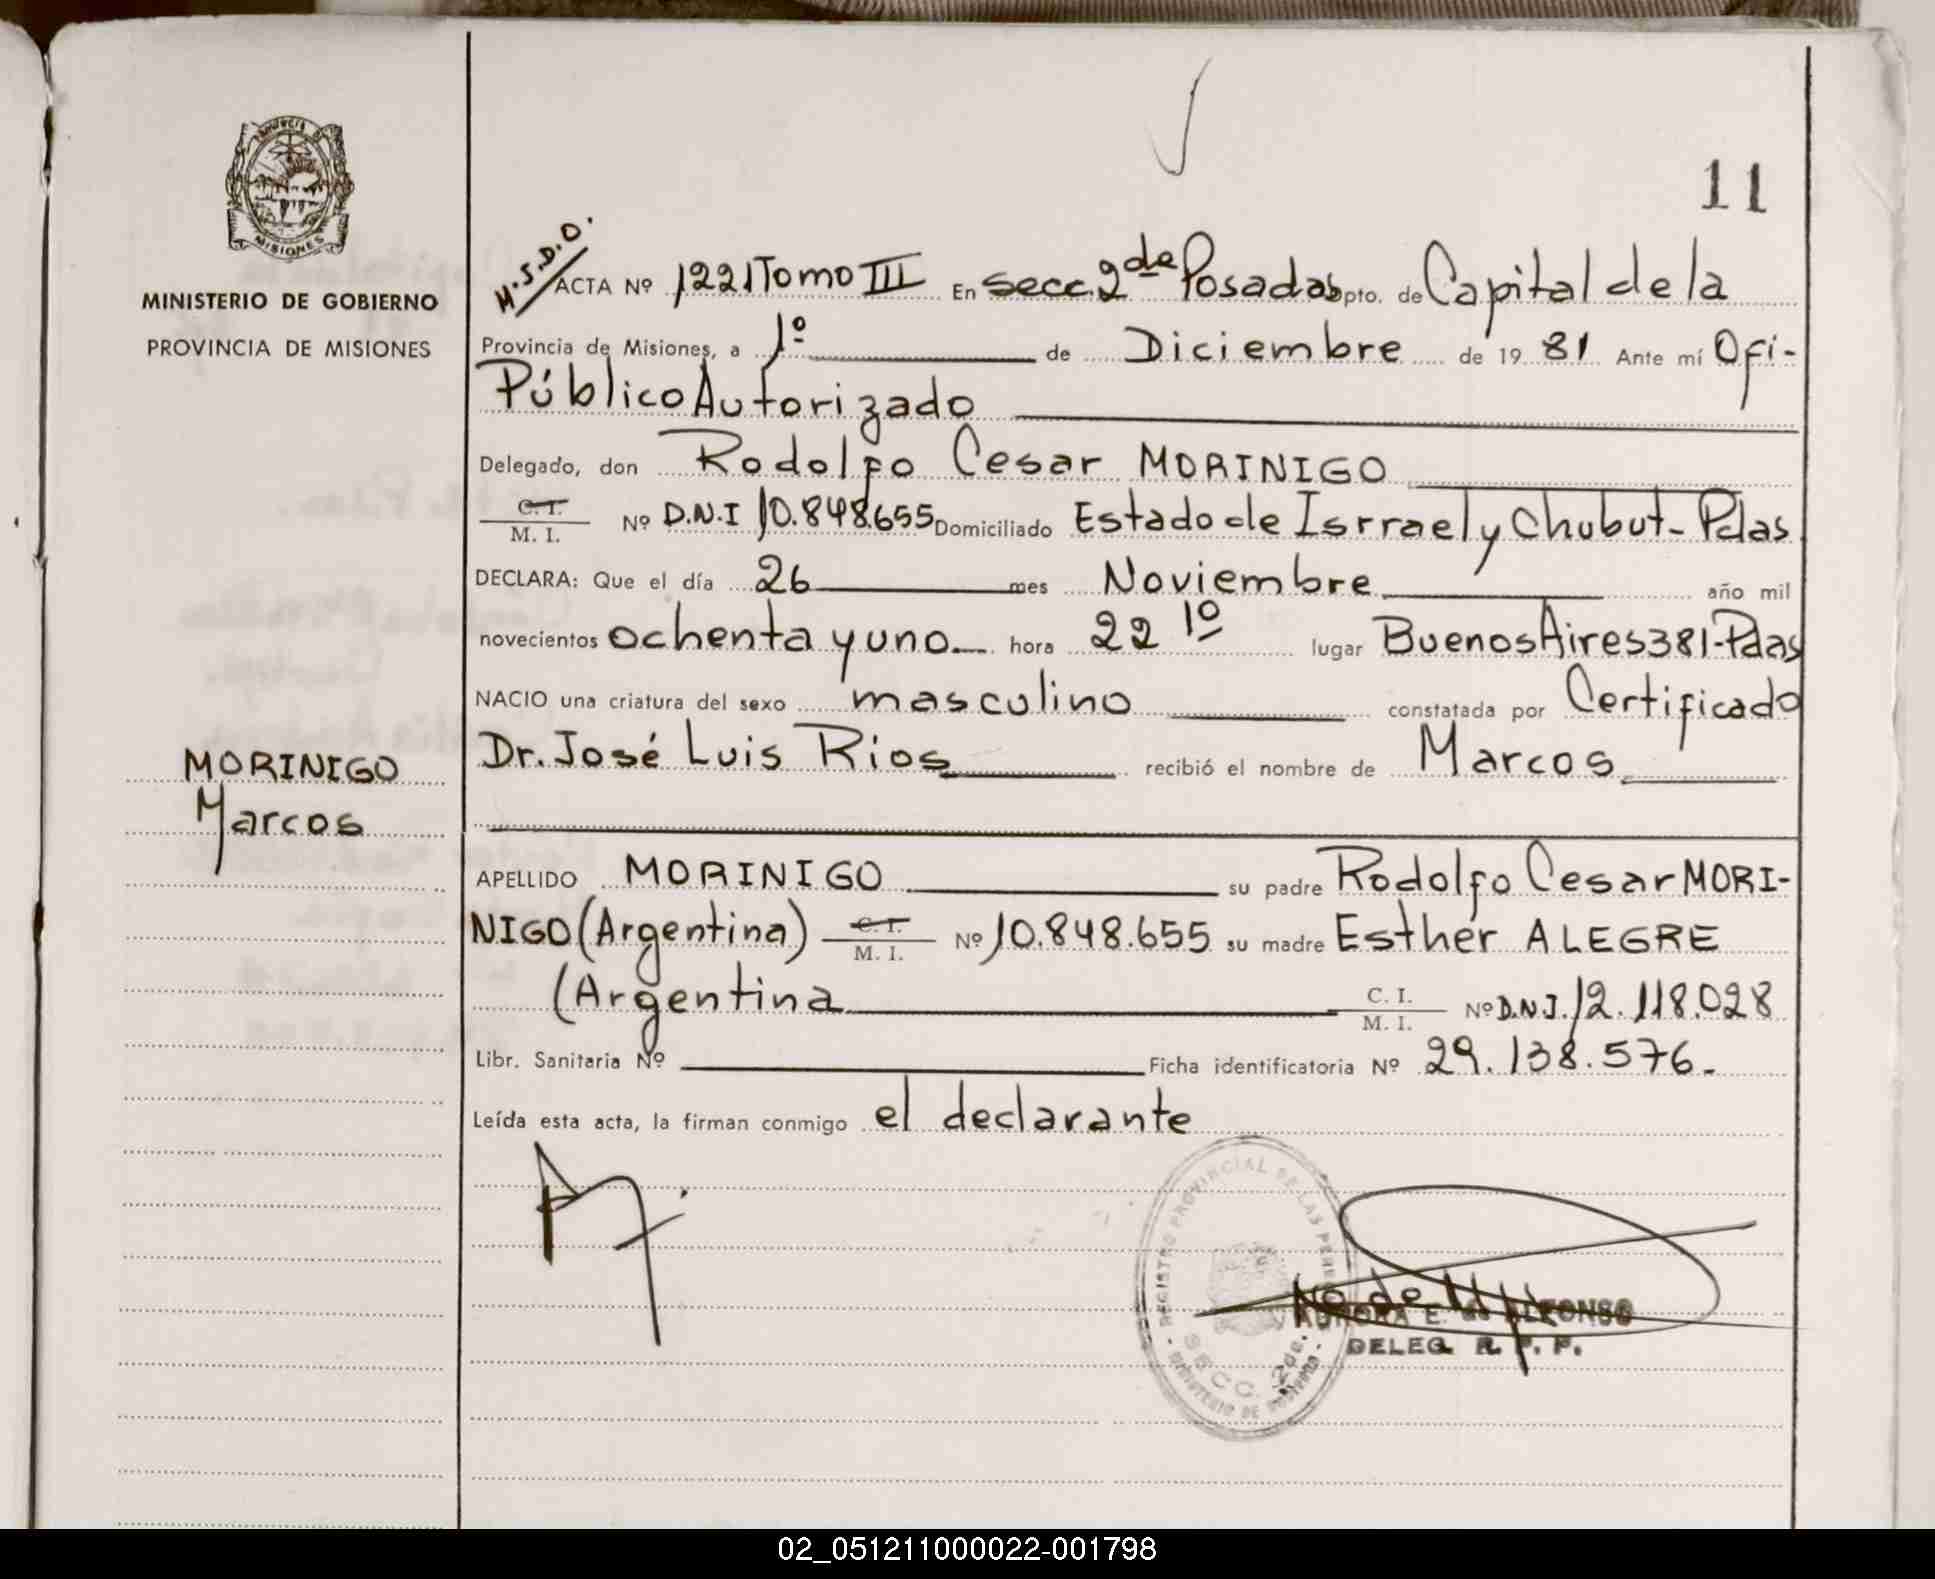 11
M.S.D.D.
ACTA Nº 1221 Tomo III En secc. 2da Posadas Dpto. de Capital de la
MINISTERIO DE GOBIERNO
PROVINCIA DE MISIONES
MISIONES
Provincia de Misiones, a 1º de Diciembre de 19 81 Ante mí Ofi-
Público Autorizado
Delegado, don Rodolfo Cesar MORINIGO
C.I. M. I. Nº D.N.I 10.848.655 Domiciliado Estado de Isrrael y Chubut - Pdas
DECLARA: Que el día 26 mes Noviembre año mil
novecientos ochenta y uno hora 22 10 lugar Buenos Aires 381-Pdas
NACIO una criatura del sexo masculino constatada por Certificado
Dr. José Luis Rios recibió el nombre de Marcos
MORINIGO
Marcos
APELLIDO MORINIGO su padre Rodolfo Cesar MORI-
NIGO (Argentina) C.I. M. I. Nº 10.848.655 su madre Esther ALEGRE
(Argentina C. I. M. I. Nº D.N.I. 12.118.028
Libr. Sanitaria Nº Ficha identificatoria Nº 29.138.576.-
Leída esta acta, la firman conmigo el declarante
REGISTRO PROVINCIAL DE LAS PERS
SECC. 2da.
MINISTERIO DE GOBIERNO
AURORA E. de ALFONSO
DELEG. R. P. P.
02_051211000022-001798